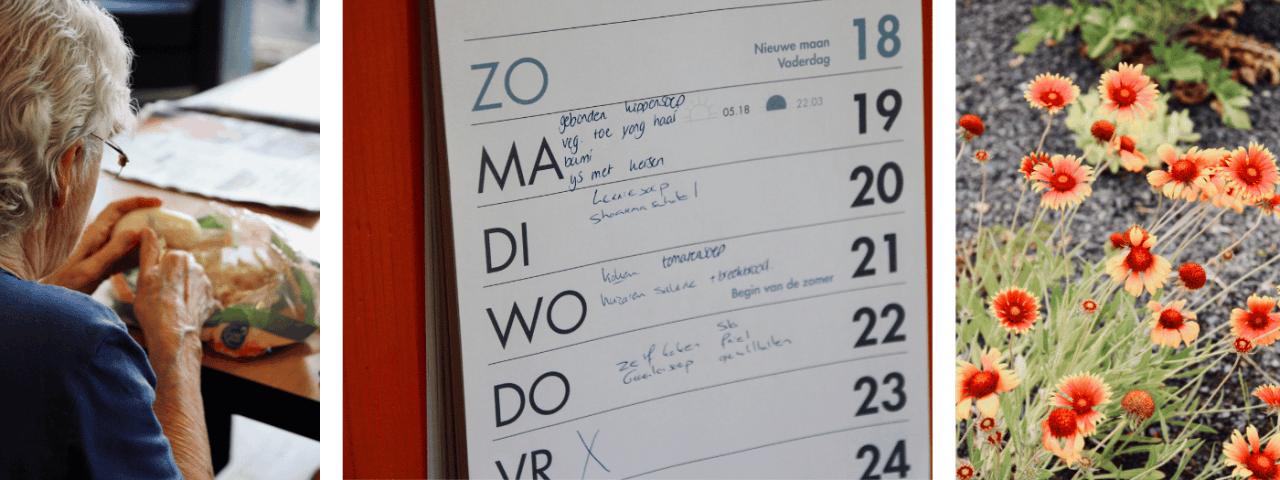 ZO
Nieuwe maan
Vaderdag
18
MA
gebonden kippensoep
veg. toe yong haai
bami
ijs met kersen
05.18
22.03
19
DI
Shoarma schotel
20
WO
koken tomatensoep
huzaren salade + breekbrood
Begin van de zomer
21
DO
zelf koken
Groentesoep
22
VR
X
23
24